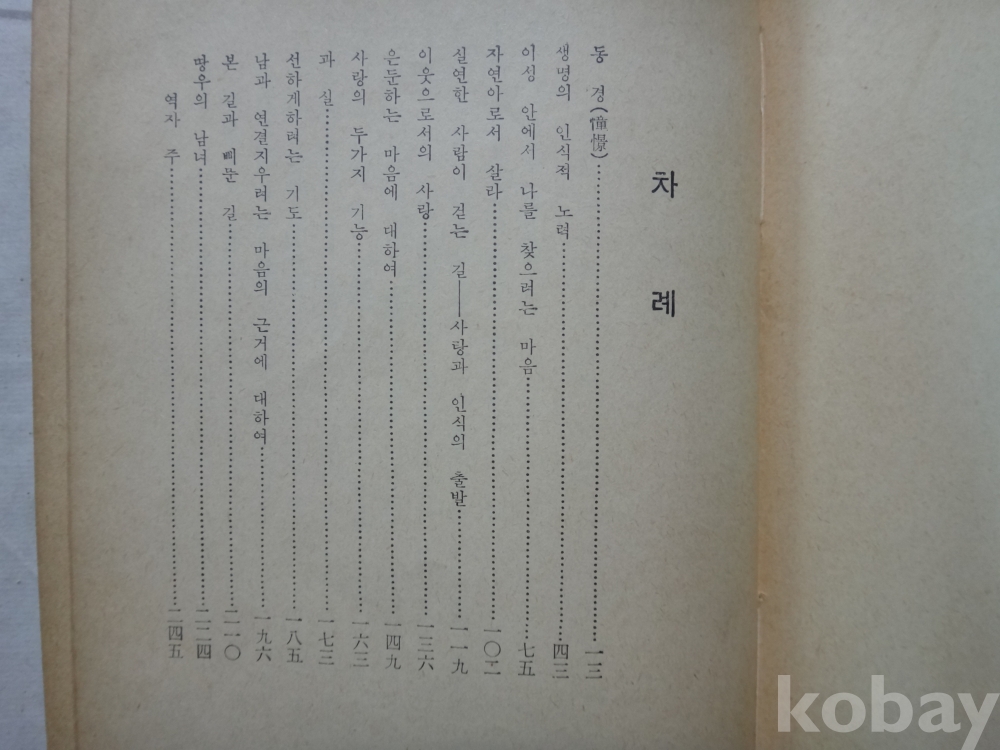 차례
동 경(憧憬)……一三
생명의 인식적 노력……四三
이성 안에서 나를 찾으려는 마음……七五
자연아로서 살라……一〇二
실연한 사람이 걷는 길──사랑과 인식의 출발……一一九
이웃으로서의 사랑……一三六
은둔하는 마음에 대하여……一四九
사랑의 두가지 기능……一六三
과 실……一七三
선하게하려는 기도……一八五
남과 연결지우려는 마음의 근거에 대하여……一九六
본 길과 삐뚠 길……二一〇
땅우의 남녀……二二四
역자 주……二四五
kobay